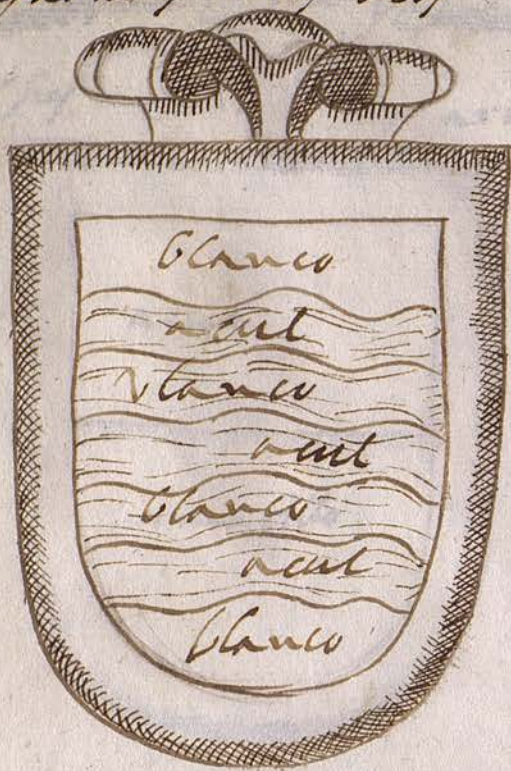 blanco
acul
blanco
acul
blanco
acul
blanco